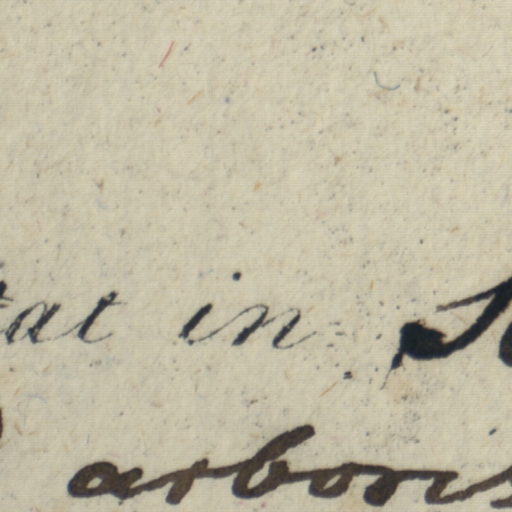 tat in
arboris